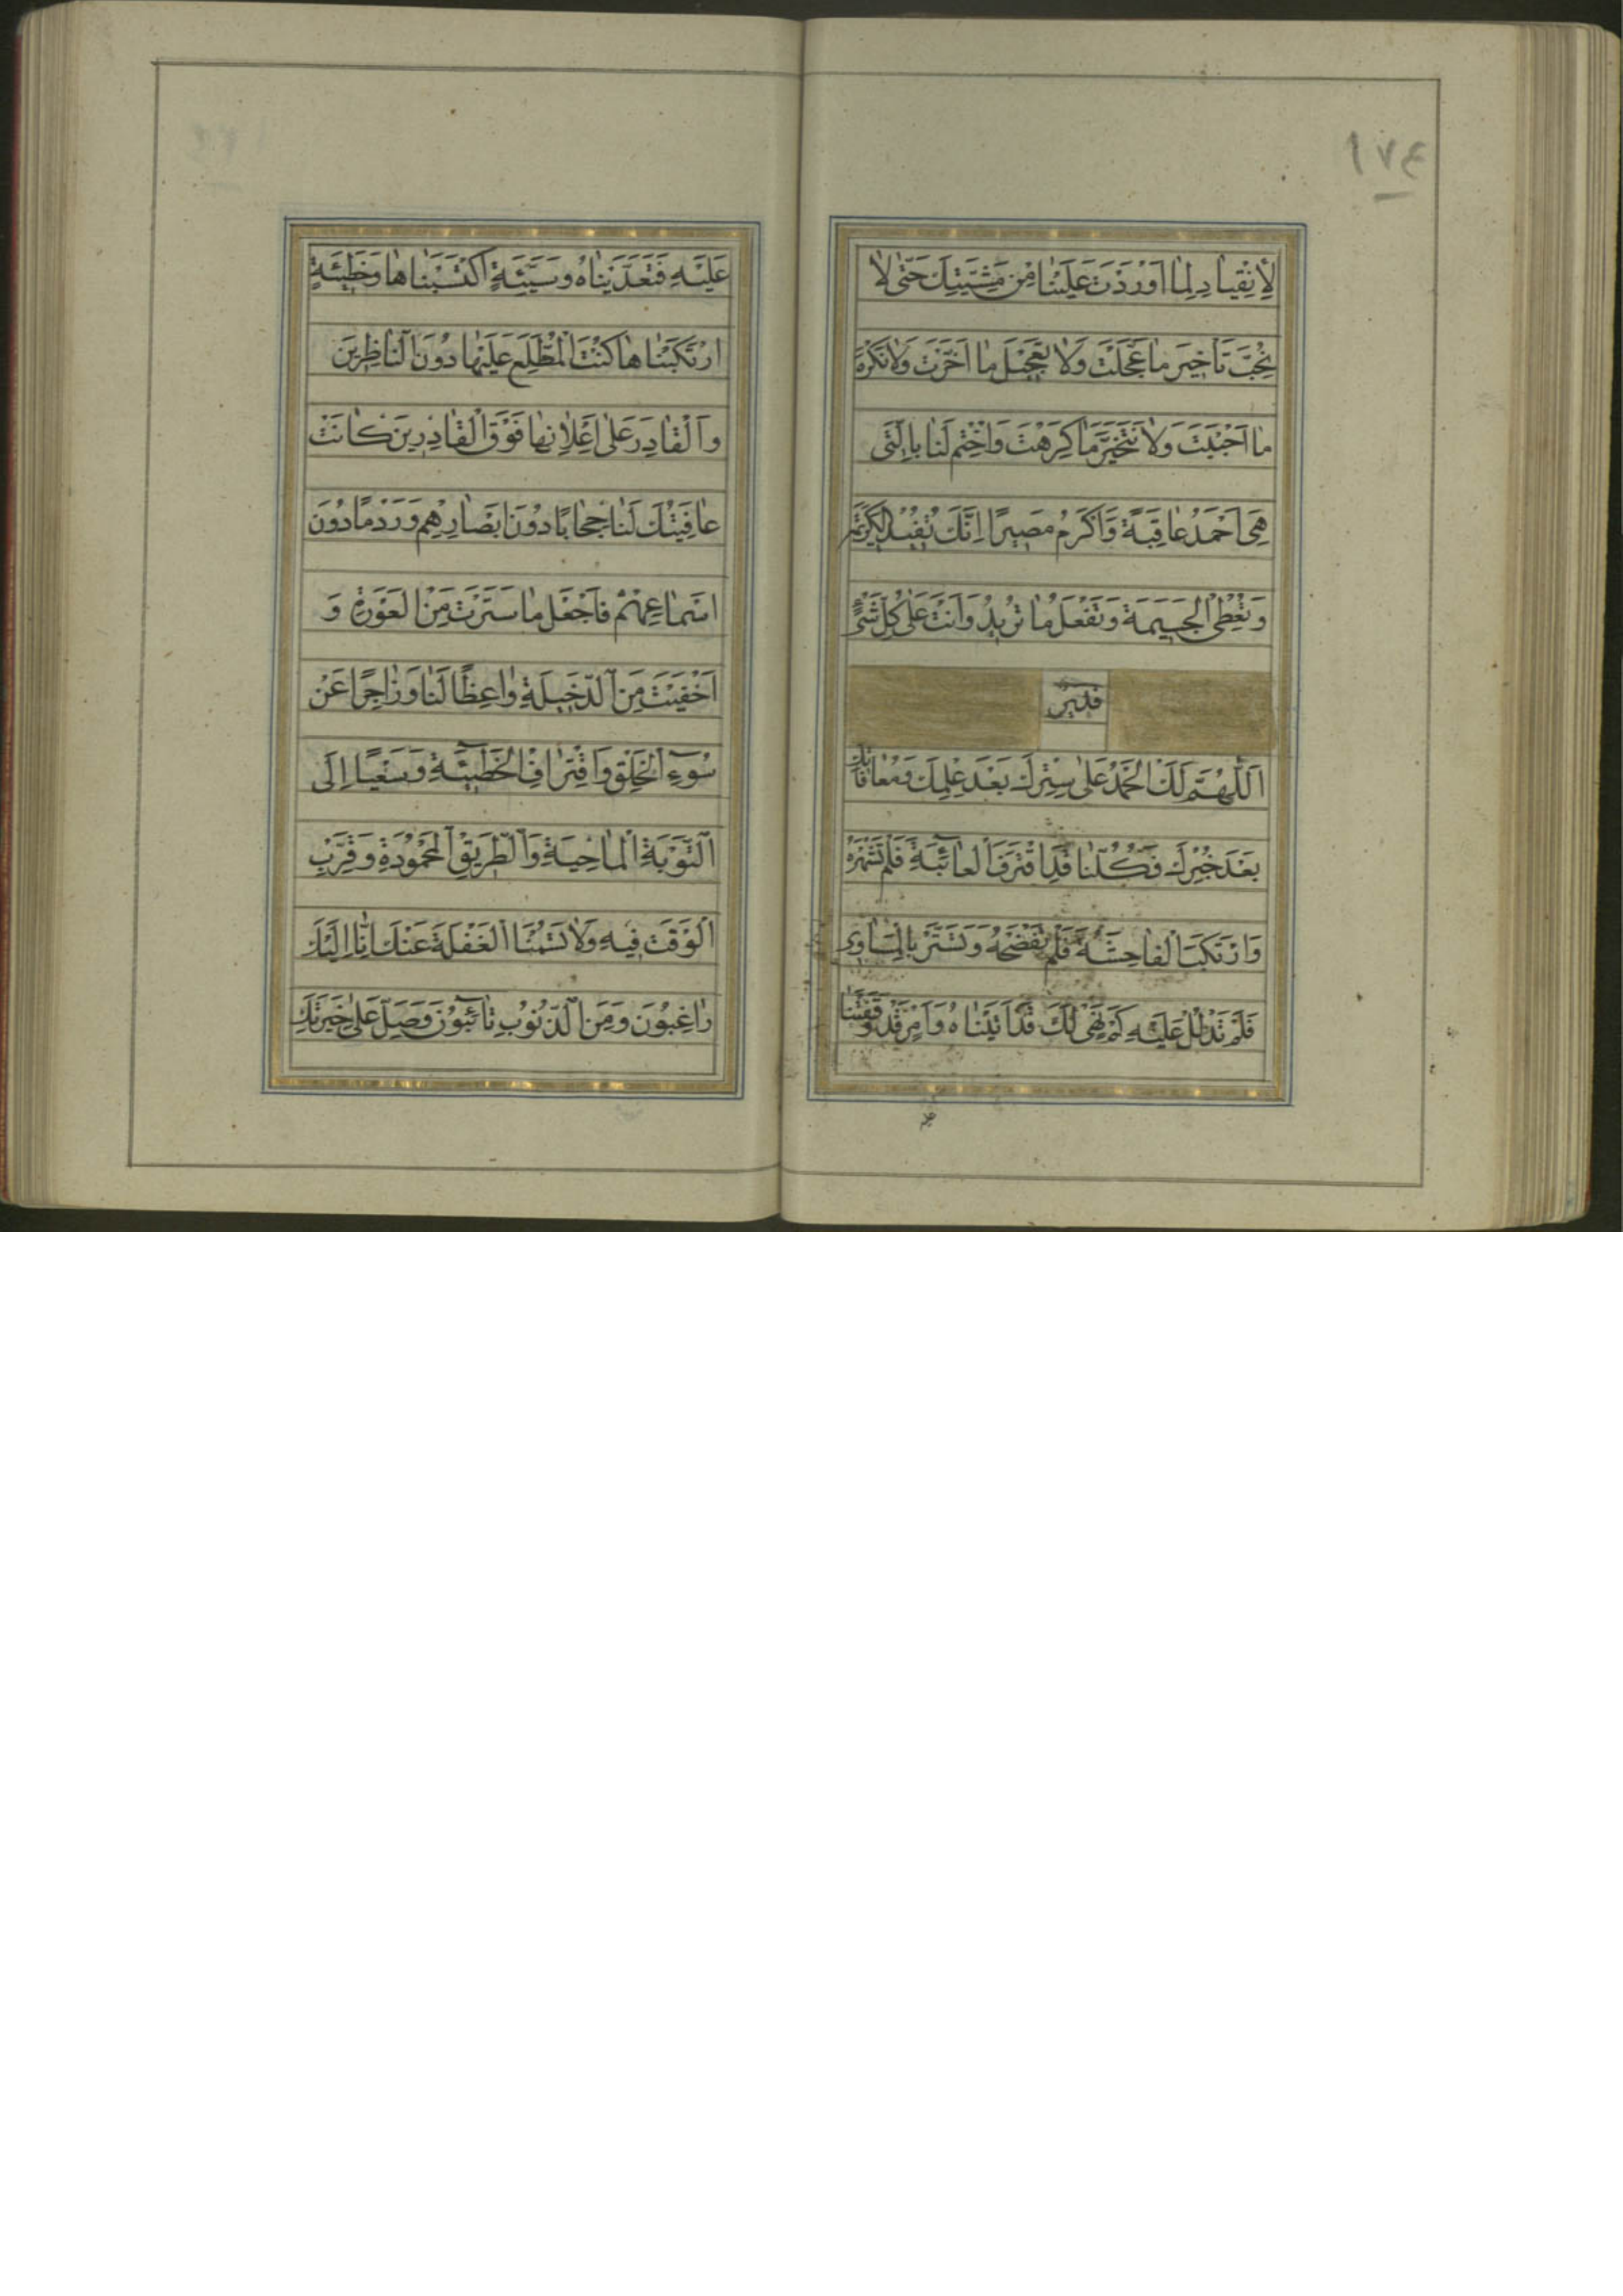 ١٧٤
لِأِنْقِيادِ لِمٰا اَوْرَدْتَ عَلَيْنٰا مِنْ مَشِيَّتِكَ حَتّٰى لاٰ
نُحِبَّ تَأخيرَ مٰا عَجَّلْتَ وَلاٰ تَعْجيلَ مٰا اَخَّرْتَ وَلاٰ نَكْرَهَ
مٰا اَحْبَبْتَ وَلاٰ نَتَخَيَّرَ مٰا كَرِهْتَ وَاخْتِمْ لَنٰا بِالَّتى
هِىَ اَحْمَدُ عٰاقِبَةً وَاَكْرَمُ مَصيرًا اِنَّكَ تُفيْدُ الْكَريمَةَ
وَتُعْطِى الْجَسيمَةَ وَتَفْعَلُ مٰا تُريدُ وَاَنْتَ عَلٰى كُلِّ شَىْءٍ
قَديرٌ
اَللّٰهُمَّ لَكَ الْحَمْدُ عَلٰى سِتْرِكَ بَعْدَ عِلْمِكَ وَمُعٰافٰاتِكَ
بَعْدَ خُبْرِكَ فَكُلُّنٰا قَدِ اقْتَرَفَ الْعٰائِبَةَ فَلَمْ تَشْهَرْهُ
وَارْتَكَبَ الْفٰاحِشَةَ فَلَمْ تَفْضَحْهُ وَتَسَتَّرَ بِالْمَسٰاوِى
فَلَمْ تَدْلُلْ عَلَيْهِ كَمْ نَهْىٍ لَكَ قَدْ اَتَيْنٰاهُ وَاَمْرٍ قَدْ وَقَفْتَنٰا
عَلَيْهِ فَتَعَدَّيْنٰاهُ وَسَيِّئَةٍ اكْتَسَبْنٰاهٰا وَخَطيئَةٍ
ارْتَكَبْنٰاهٰا كُنْتَ الْمُطَّلِعَ عَلَيْهٰا دُوْنَ النّٰاظِرينَ
وَالْقٰادِرَ عَلٰى اِعْلاٰنِهٰا فَوْقَ الْقٰادِرينَ كٰانَتْ
عٰافِيَتُكَ لَنٰا حِجٰابًا دُوْنَ اَبْصٰارِهِمْ وَرَدْمًا دُوْنَ
اَسْمٰاعِهِمْ فَاجْعَلْ مٰا سَتَرْتَ مِنَ الْعَوْرَةِ وَ
اَخْفَيْتَ مِنَ الدَّخيلَةِ وٰاعِظًا لَنٰا وَزٰاجِرًا عَنْ
سُوْءِ الْخُلْقِ وَاقْتِرٰافِ الْخَطيئَةِ وَسَعْيًا اِلَى
التَّوْبَةِ الْمٰاحِيَةِ وَالطَّريْقِ الْمَحْمُوْدَةِ وَقَرِّبِ
الْوَقْتَ فيهِ وَلاٰ تَسُمْنَا الْغَفْلَةَ عَنْكَ اِنّٰا اِلَيْكَ
رٰاغِبُوْنَ وَمِنَ الذُّنُوْبِ تٰائِبُوْنَ وَصَلِّ عَلٰى خِيَرَتِكَ
عليه